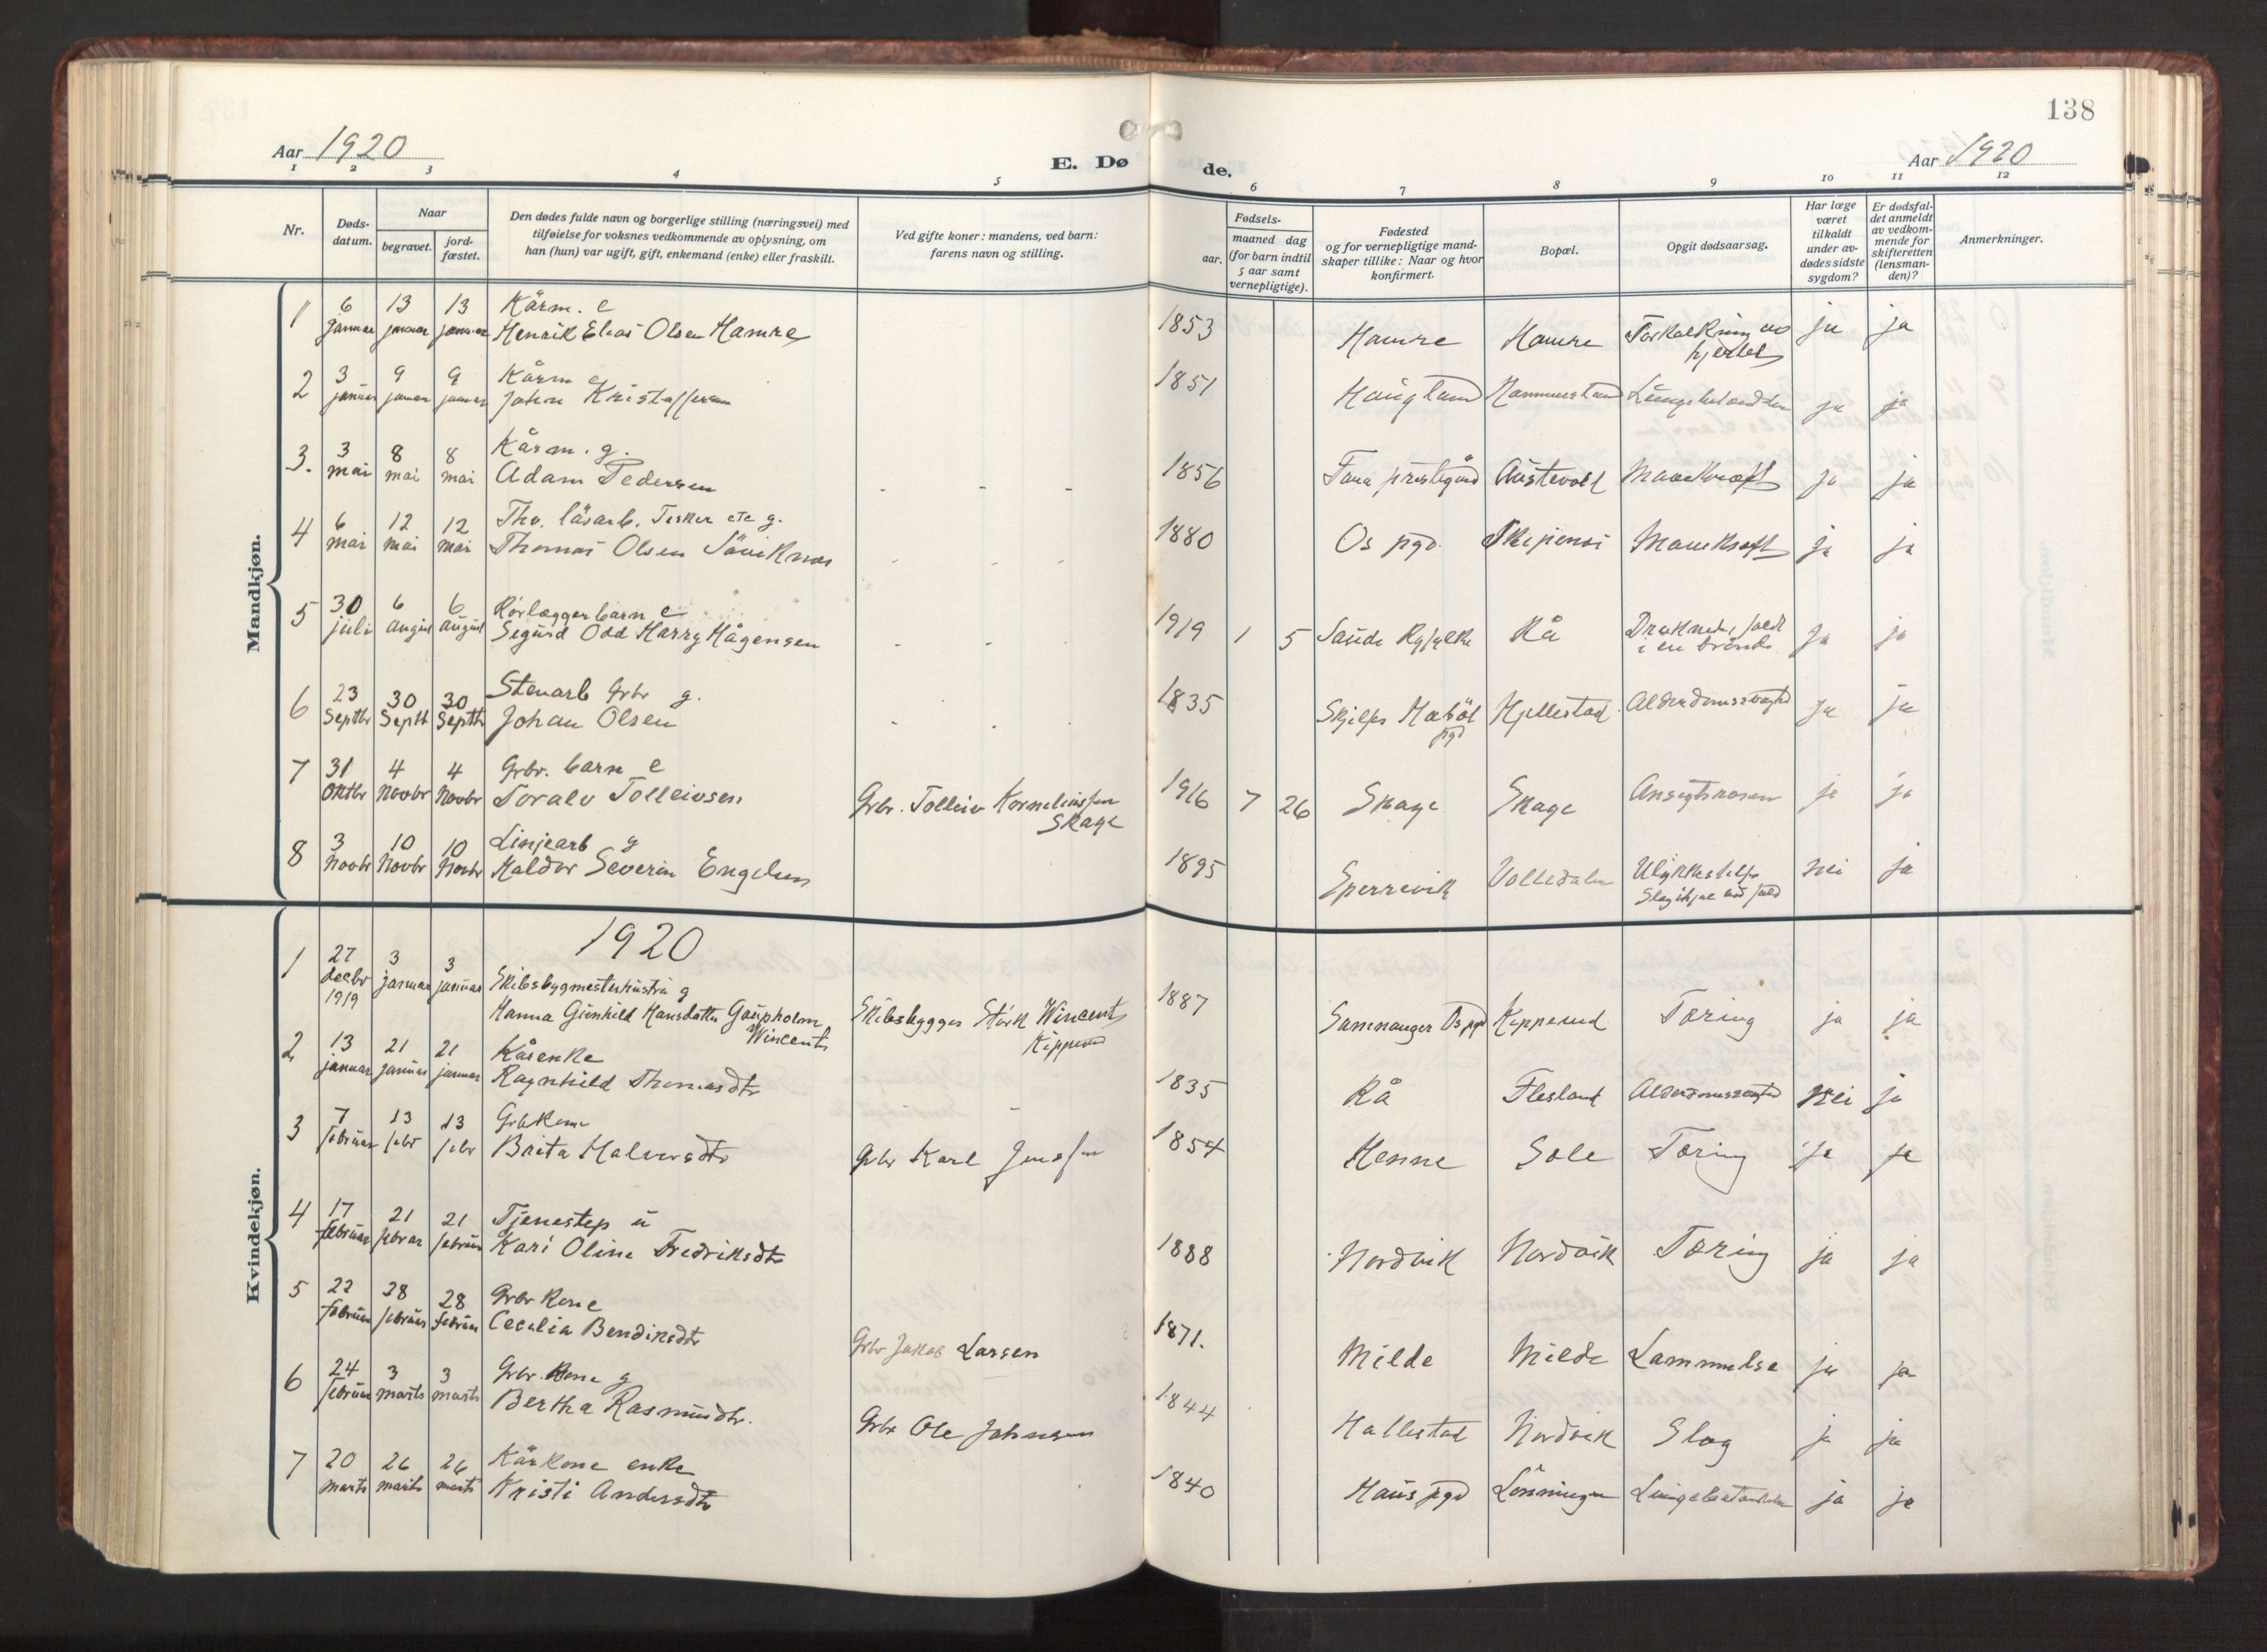 138
Aar 1920
E. Dø
de.
Aar 1920
1 2 3 4 5 6 7 8 9 10 11 12
Nr.
Døds-
datum.
Naar
begravet.
jord-
fæstet.
Den dødes fulde navn og borgerlige stilling (næringsvei) med
tilføielse for voksnes vedkommende av oplysning, om
han (hun) var ugift, gift, enkemand (enke) eller fraskilt.
Ved gifte koner: mandens, ved barn:
farens navn og stilling.
Fødsels-
aar.
maaned dag
(for barn indtil
5 aar samt
vernepligtige).
Fødested
og for vernepligtige mand-
skaper tillike: Naar og hvor
konfirmert.
Bopæl.
Opgit dødsaarsag.
Har læge
været
tilkaldt
under av-
dødes sidste
sygdom?
Er dødsfal-
det anmeldt
av vedkom-
mende for
skifteretten
(lensman-
den)?
Anmerkninger.
Mandkjøn.
1 6 13 13 Kårm. e
januar januar januar Henrik Elias Olsen Hamre 1853 Hamre Hamre Forkalkning av ja ja
hjertet
2 3 9 9 Kårm e
januar januar januar John Kristoffersen 1851 Haugland ja ja
3. 3 8 8 Kårm. g.
mai mai mai Adam Pedersen - - - 1856 Fana Austevold ja ja
4 6 12 12 g.
mai mai mai Thomas Olsen 1880 Os pgd. ja ja
5 30 6 6 Rørlæggerbarn e
juli august august Sigurd Odd Harry Hågensen - - 1919 1 5 Saude Ryfylke Rå Druknede, faldt ja ja
i en brönd
6 23 30 30 Stenarb Grbr g.
Septbr Septb Septbr Johan Olsen 1835 Hjellestad Alderdomssvaghed ja ja
pgd
7 31 4 4 Grbr. barn e
Oktbr Novbr Novbr Toralv Tolleivsen Grbr. Tolleiv Korneliussen 1916 7 26 Skage Skage Ansigtsrosen ja ja
Skage
8 3 10 10 Linjearb g
Novbr Novbr Novbr Haldor Severin Engelsen 1895 Sperrevik nei ja
Kvindekjøn.
1920
1 27 3 3
decbr januar januar Skibsbygmesterhustru g
1919 Hanna Gunhild Hansdatter Gaupholm Skibsbygger Wincents 1887 Samnanger Os pgd Kipperud Tæring ja ja
Wincents Kipperud
2 13 21 21 Kåenke
januar januar januar Ragnhild Thomasdtr - - 1835 Rå Flesland Alderdomssvaghed nei ja
3 7 13 13 Grbkone
februar febr febr Brita Halvorsdtr Grbr Karl 1854 Henne Sole Tæring ja ja
4 17 21 21 Tjenestep u
februar februar Kari Oline Fredriksdtr 1888 Nordvik Nordvik Tæring ja ja
5 22 28 28 Grbr kone
februar februar februar Cecilia Bendiksdtr Grbr Jakob Larsen 1871. Milde Milde Lammelse ja ja
6 24 3 3 Grbr. kone g
februar marts marts Bertha Rasmusdtr. Grbr Ole Johnsen 1844 Hallestad Nordvik Slag ja ja
7 20 26 26 Kårkone enke
marts marts marts Kristi Andersdtr 1840 Haus pgd Lönningen ja ja